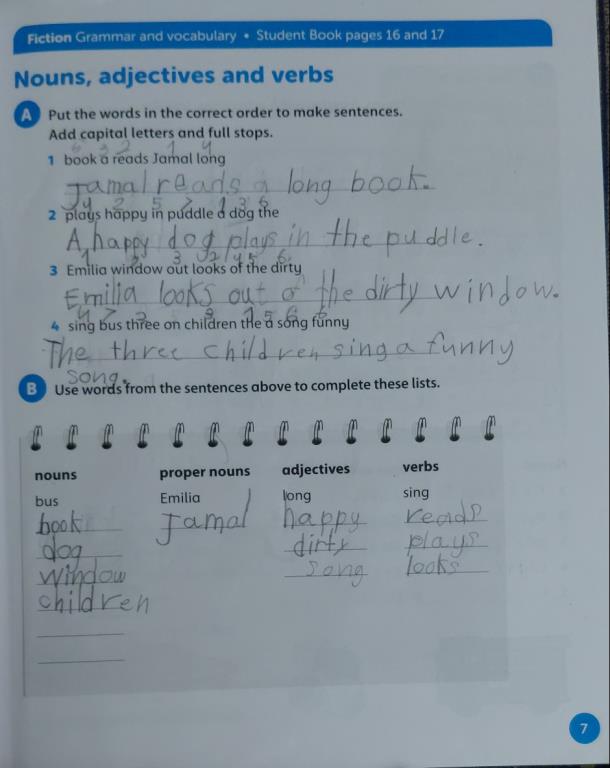 Fiction Grammar and vocabulary • Student Book pages 16 and 17
Nouns, adjectives and verbs
A Put the words in the correct order to make sentences.
Add capital letters and full stops.
1 book a reads Jamal long
Jamal reads a long book.
2 plays happy in puddle a dog the
A happy dog plays in the puddle.
3 Emilia window out looks of the dirty
Emilia looks out of the dirty window.
4 sing bus three on children the a song funny
The three children sing a funny
song.
B Use words from the sentences above to complete these lists.
nouns proper nouns adjectives verbs
bus Emilia long sing
book Jamal happy reads
dog dirty plays
window song looks
children
7